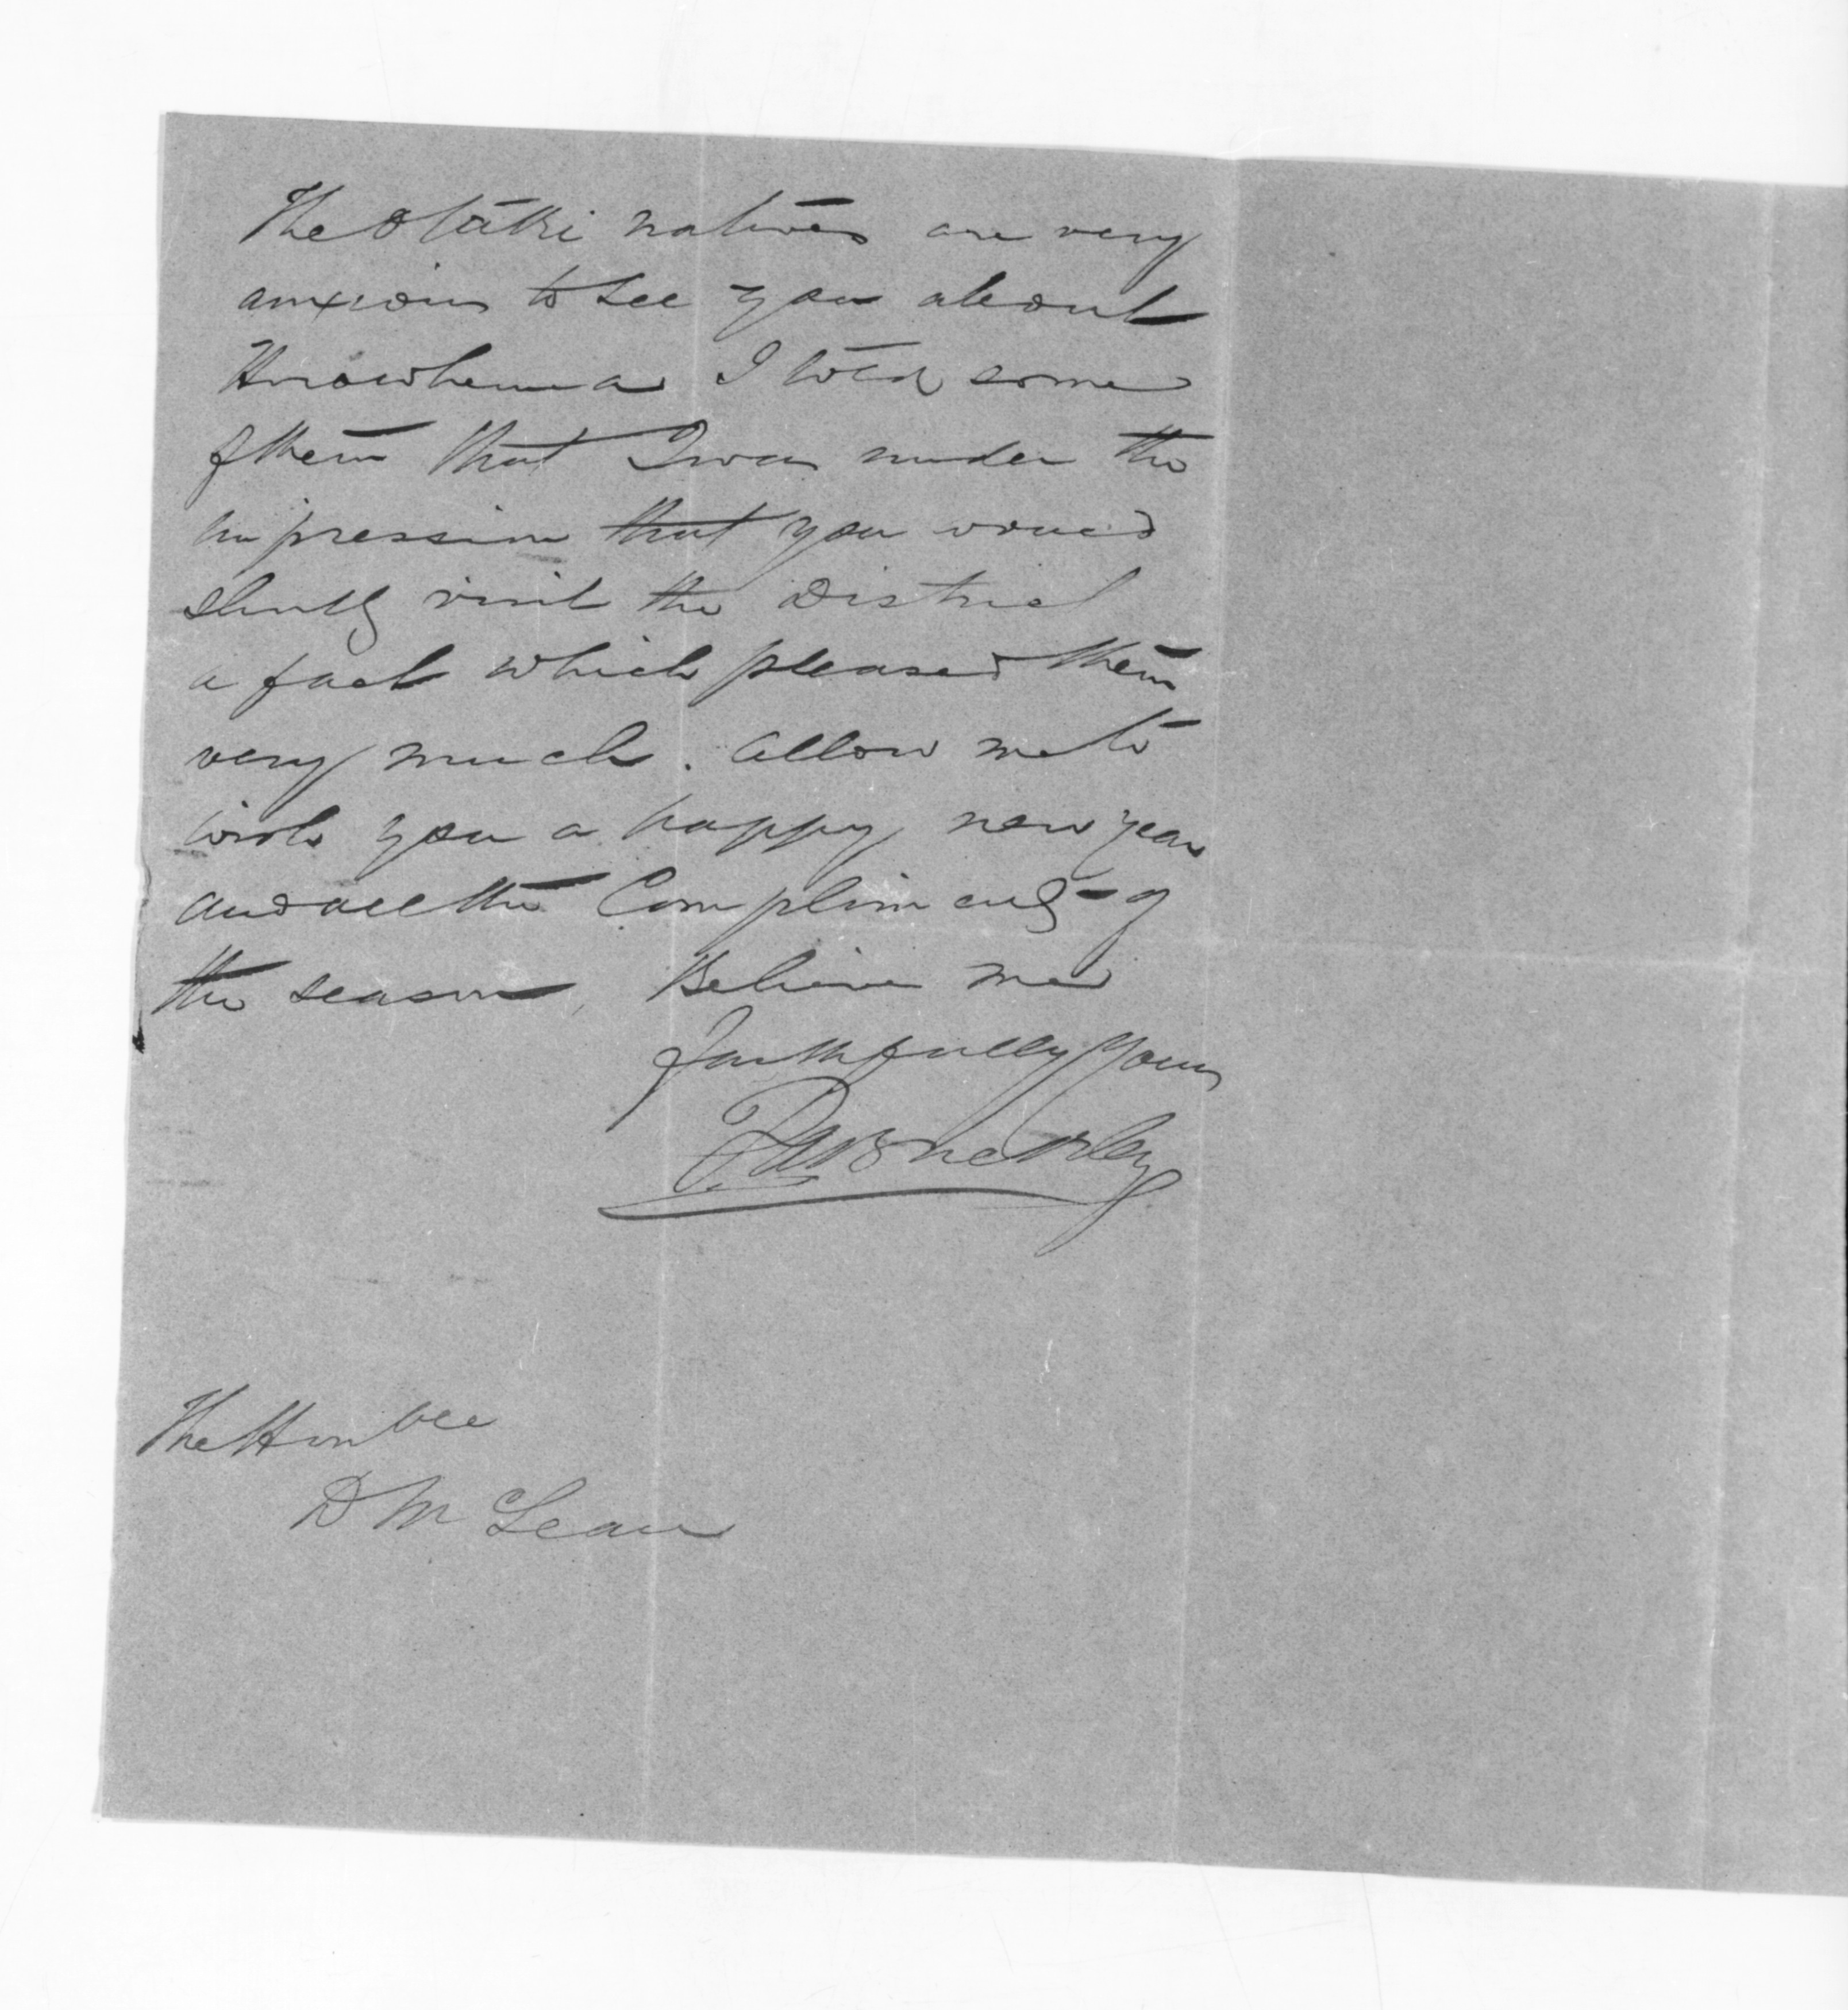 The Otaki natives are very
anxious to see you about
Horowhenua I told some
of them that I was under the
impression that you would
shortly visit the District
a fact which pleased them
very much. Allow me to
wish you a happy new year
and all the Compliments of
the season, Believe me
faithfully yours
The Honble
D McLean